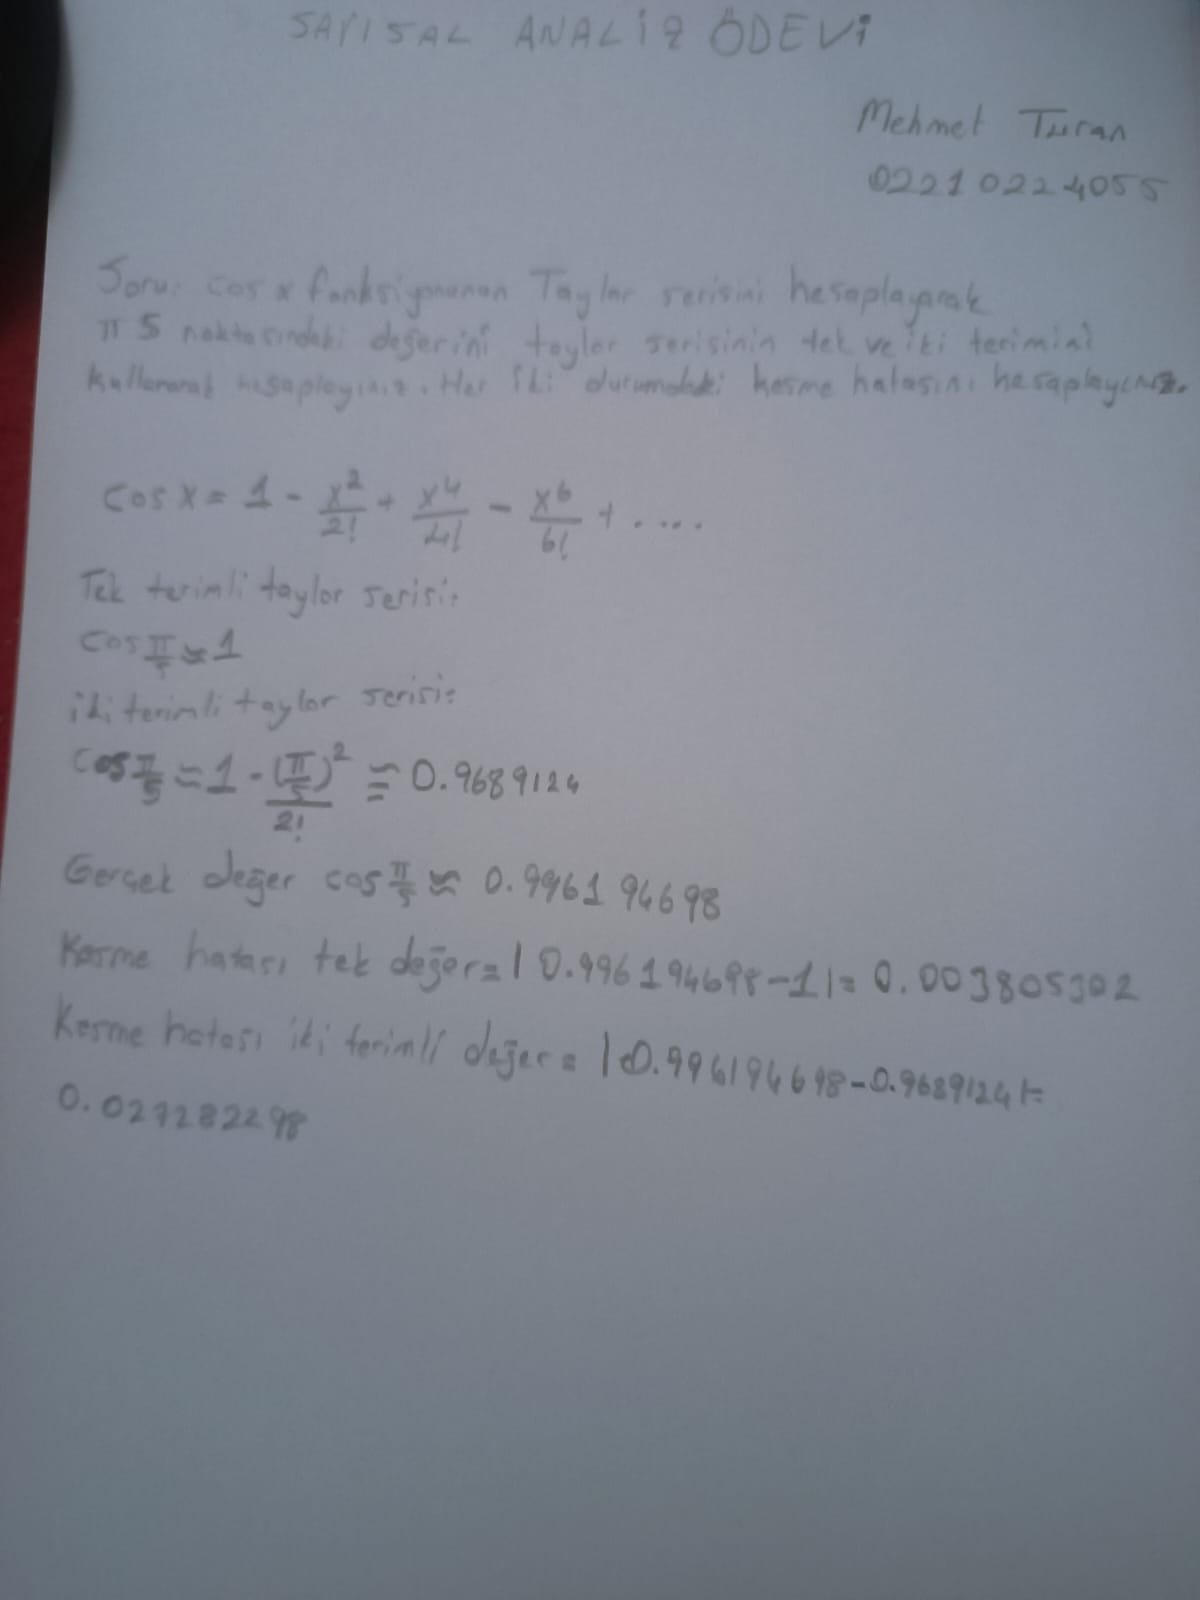 SAYISAL ANALİZ ÖDEVİ
Mehmet Turan
02210224055
Soru: cos x fonksiyonunun Taylor serisini hesaplayarak
π 5 noktasındaki değerini taylor serisinin tek ve iki terimini
kullanarak hesaplayınız. Her iki durumdaki kesme hatasını hesaplayınız.
cos x = 1 - x²/2! + x⁴/4! - x⁶/6! + ....
Tek terimli taylor serisi:
cos π/5 ≈ 1
iki terimli taylor serisi:
cos π/5 ≈ 1 - (π/5)²/2! ≅ 0.9689124
Gerçek değer cos π/5 ≈ 0.996194698
Kesme hatası tek değer = | 0.996194698 - 1 | = 0.003805302
Kesme hatası iki terimli değer = | 0.996194698 - 0.9689124 | =
0.027282298